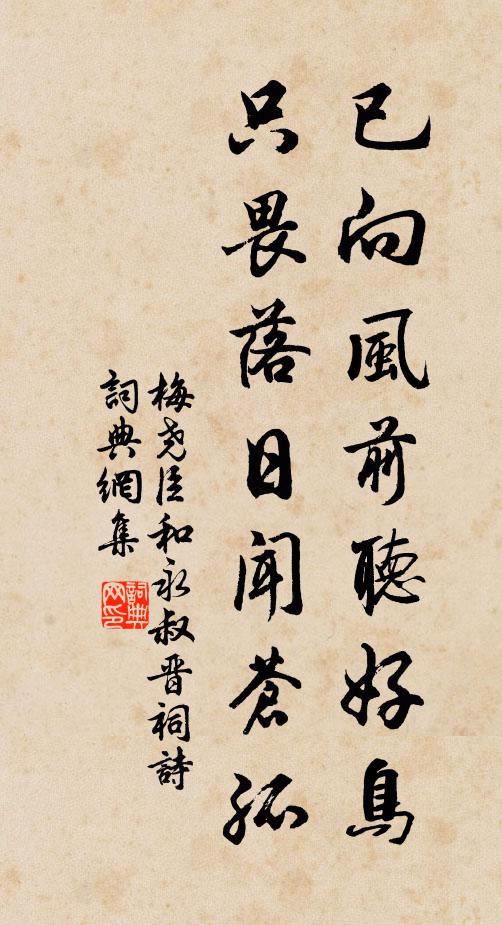 已向風前聽好鳥
只畏落日聞蒼狐
梅堯臣和永叔晉祠詩
詞典網集
詞典网印